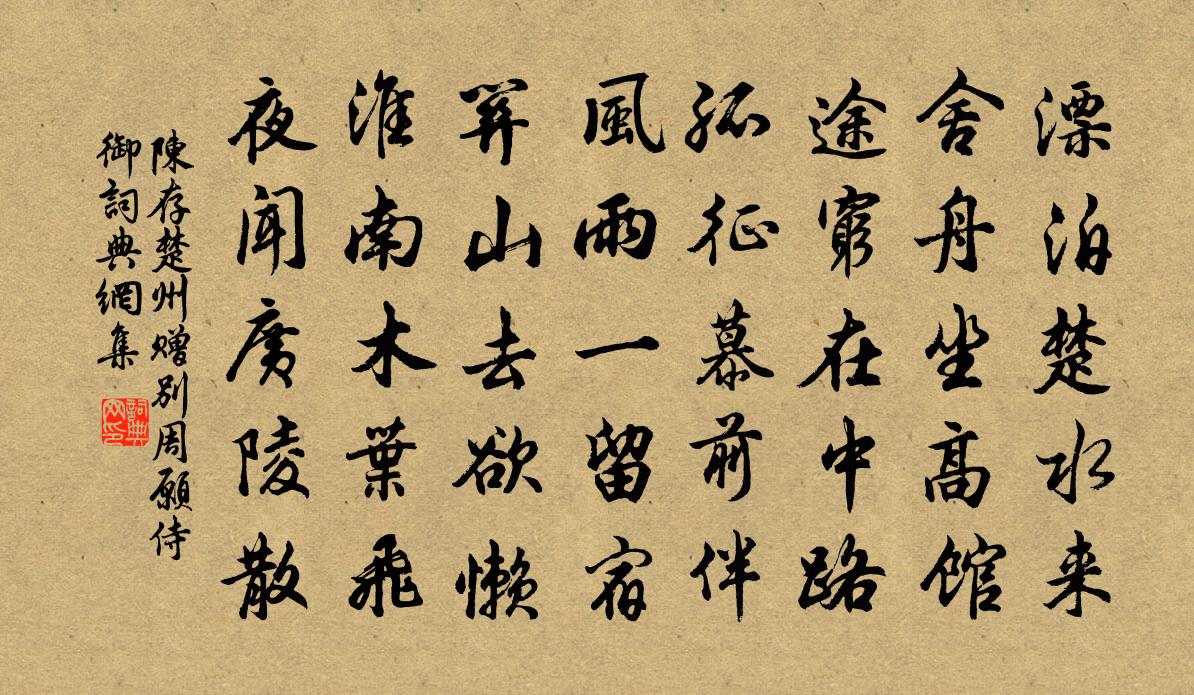 漂泊楚水来
舍舟坐高館
途窮在中路
孤征慕前伴
風雨一留宿
關山去欲懶
淮南木葉飛
夜聞廣陵散
陳存楚州贈別周願侍
御詞典網集
詞典
网印